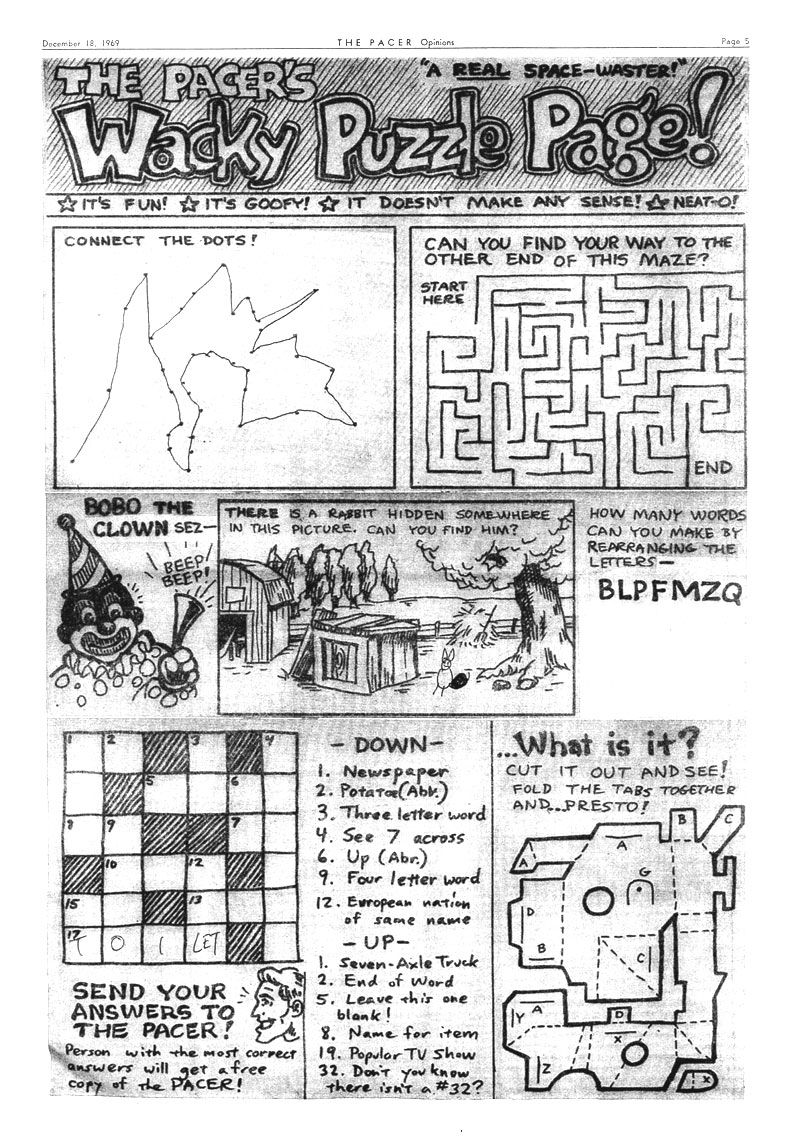 December 18, 1969
THE PACER Opinions
Page 5
THE PACER'S
"A REAL SPACE-WASTER!"
Wacky Puzzle Page!
IT'S FUN! IT'S GOOFY! IT DOESN'T MAKE ANY SENSE! NEAT-O!
CONNECT THE DOTS!
CAN YOU FIND YOUR WAY TO THE
OTHER END OF THIS MAZE?
START
HERE
END
BOBO THE
CLOWN SEZ—
BEEP!
BEEP!
THERE IS A RABBIT HIDDEN SOMEWHERE
IN THIS PICTURE. CAN YOU FIND HIM?
HOW MANY WORDS
CAN YOU MAKE BY
REARRANGING THE
LETTERS—
BLPFMZQ
1 2 3 4
5 6
8 9 7
10 12
15 13
17 T O I LET
- DOWN -
1. Newspaper
2. Potatoe (Abr.)
3. Three letter word
4. See 7 across
6. Up (Abr.)
9. Four letter word
12. European nation
of same name
- UP -
1. Seven-Axle Truck
2. End of Word
5. Leave this one
blank!
8. Name for item
19. Popular TV Show
32. Don't you know
there isn't a #32?
SEND YOUR
ANSWERS TO
THE PACER!
Person with the most correct
answers will get a free
copy of the PACER!
...What is it?
CUT IT OUT AND SEE!
FOLD THE TABS TOGETHER
AND...PRESTO!
B C
A
A
G
D
B
C
Y A
D
X
Z
X